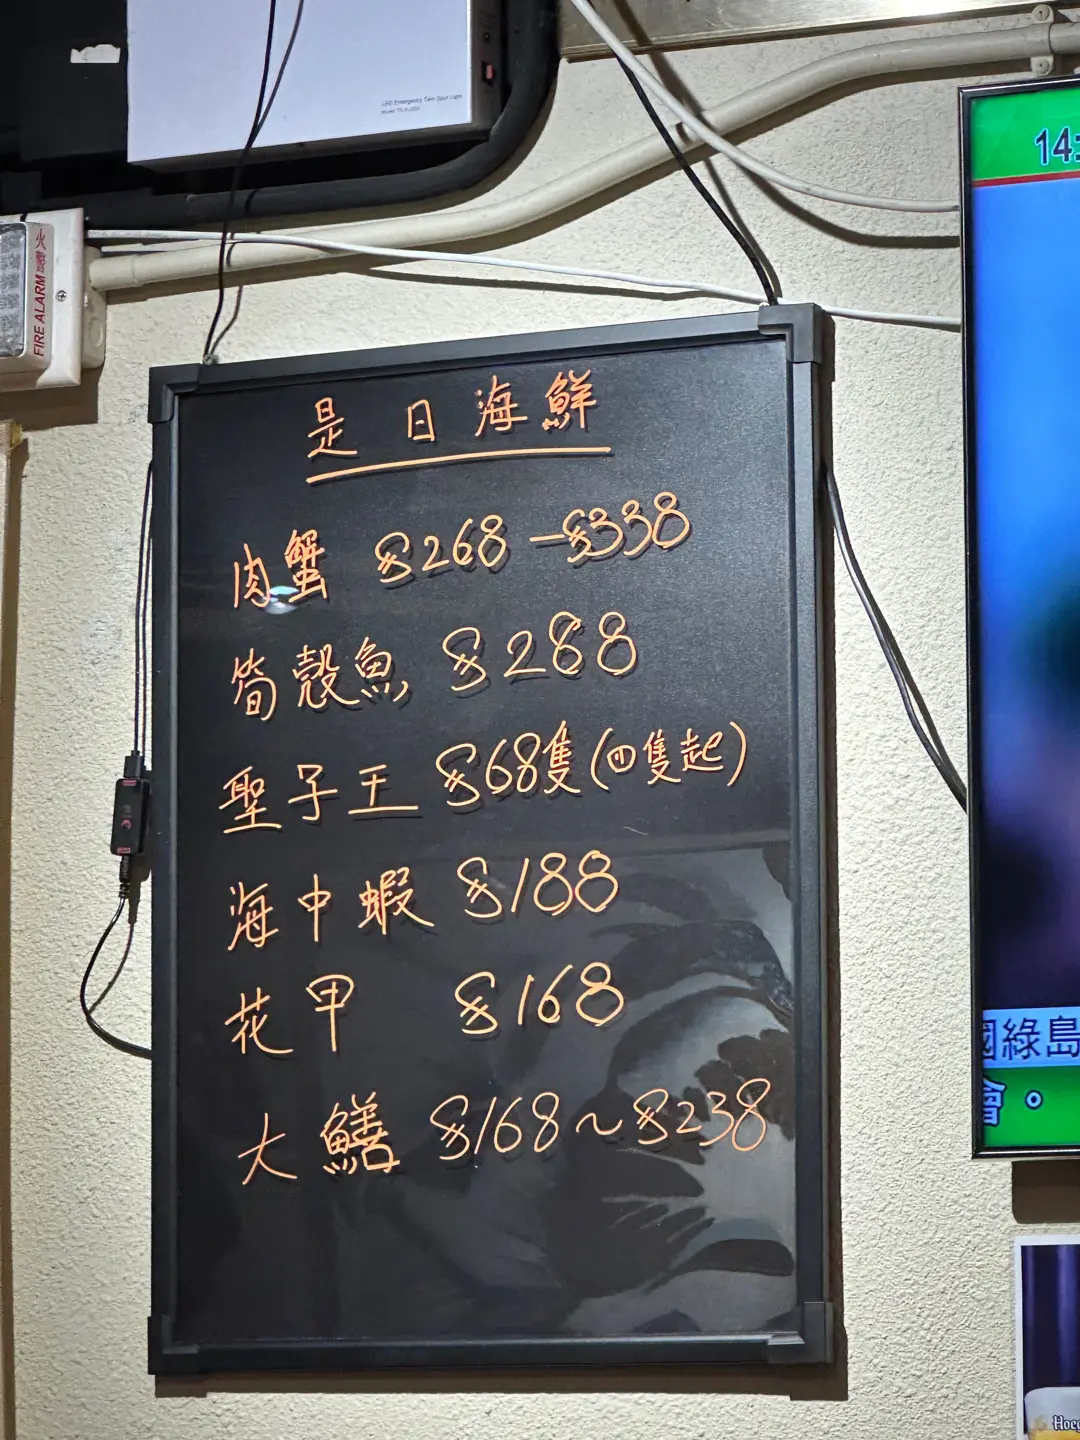 LED Emergency Twin Spot Light
火警
FIRE ALARM
14:
是日海鮮
肉蟹 $268-$338
筍殼魚 $288
聖子王 $68隻(四隻起)
海中蝦 $188
花甲 $168
大鱔 $168~$238
國綠島
會。
Hoeg